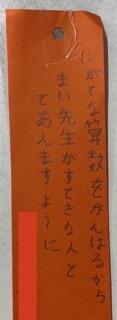 にがてな算数をがんばるから
まい先生がすてきな人と
であえますように